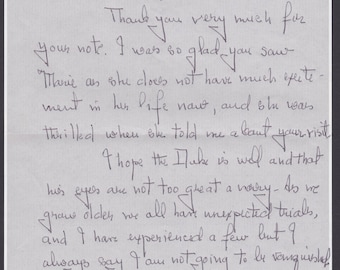 Thank you very much for
your note. I was so glad you saw
Marie as she does not have much excite-
ment in her life now, and she was
thrilled when she told me about your visit
I hope the Duke is well and that
his eyes are not too great a worry. As we
grow older we all have unexpected trials,
and I have experienced a few but I
always say I am not going to be vanquished